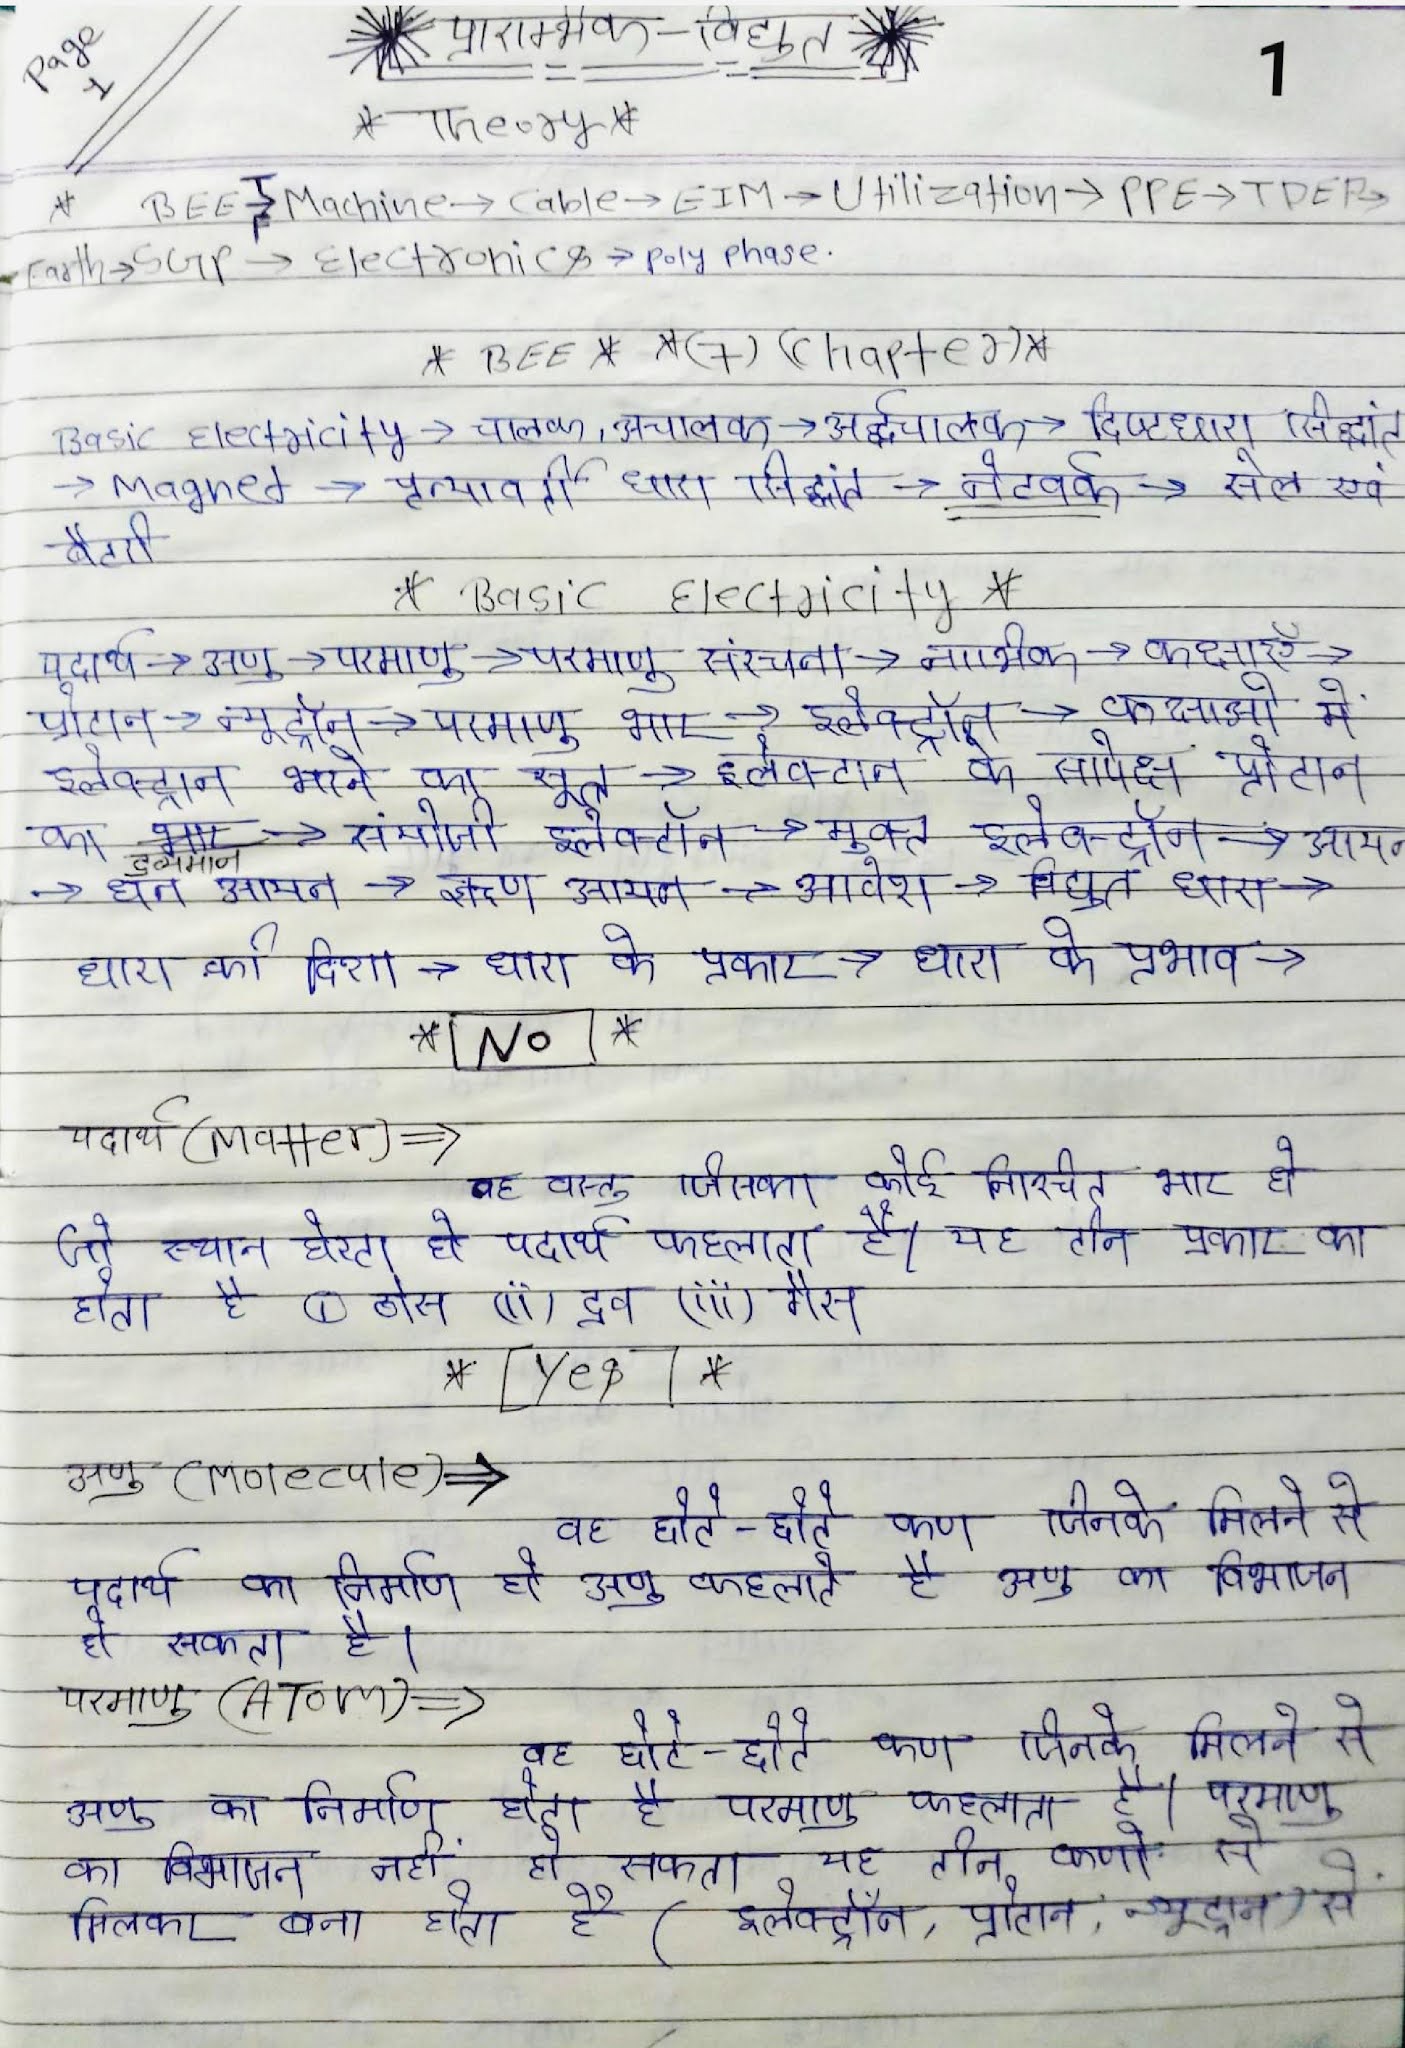 Page 1
प्रारम्भिक-विद्युत
1
* Theory *
* BEE → Machine → Cable → EIM → Utilization → PPE → TDEP →
Earth → SGP → Electronics → Poly phase.
* BEE * *(7) (Chapter)*
Basic Electricity → चालक, अचालक → अर्द्धचालक → दिष्टधारा सिद्धांत
→ Magnet → प्रत्यावर्ती धारा सिद्धांत → नेटवर्क → सेल एवं
बैटरी
* Basic Electricity *
पदार्थ → अणु → परमाणु → परमाणु संरचना → नाभिक → कक्षाएँ →
प्रोटान → न्यूट्रॉन → परमाणु भार → इलेक्ट्रॉन → कक्षाओ में
इलेक्ट्रान भरने का सूत्र → इलेक्टान के सापेक्ष प्रोटान
का भार → संयोजी इलेक्टॉन → मुक्त इलेक्ट्रॉन → आयन
द्रव्यमान
→ धन आयन → ऋण आयन → आवेश → विद्युत धारा →
धारा की दिशा → धारा के प्रकार → धारा के प्रभाव →
* No *
पदार्थ (Matter) ⇒
वह वस्तु जिसका कोई निश्चित भार हो
जो स्थान घेरता हो पदार्थ कहलाता है। यह तीन प्रकार का
होता है (i) ठोस (ii) द्रव (iii) गैस
* Yes *
अणु (Molecule) ⇒
वह छोटे-छोटे कण जिनके मिलने से
पदार्थ का निर्माण हो अणु कहलाते है अणु का विभाजन
हो सकता है।
परमाणु (ATom) ⇒
वह छोटे-छोटे कण जिनके मिलने से
अणु का निर्माण होता है परमाणु कहलाता है। परमाणु
का विभाजन नहीं हो सकता यह तीन कणो से
मिलकर बना होता है ( इलेक्ट्रॉन, प्रोटान, न्यूट्रान) से